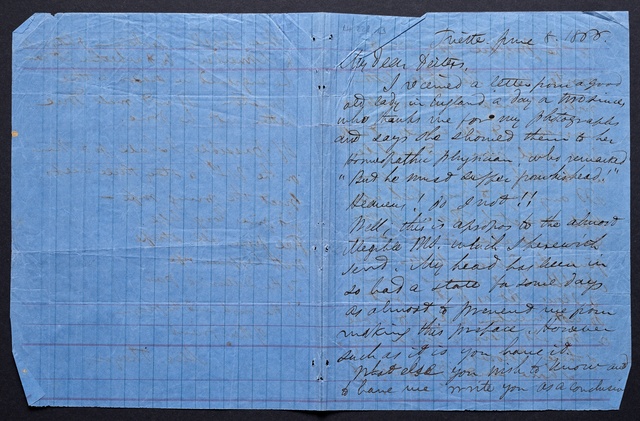 Trieste June 8. 1866.
My Dear Doctor,
I received a letter from a good
old lady in England a day or two since
who thanks me for my photographs
and says she showed them to her
Homeopathic physician who remarked
"But he must suffer from his head."
Heavens! do I not!!
Well, this is apropos to the almost
illegible MS. which I herewith
send. My head has been in
so bad a state for some days
as almost to prevent me from
making this preface. However
such as it is you have it.
What else you wish to know and
to have me write you as a conclusion